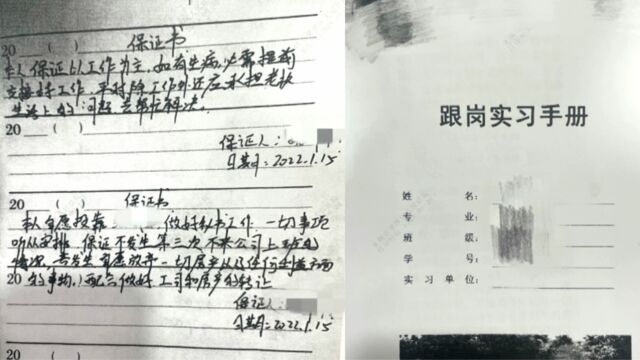 20 ( ) 保证书
本人保证以工作为主,如有生病,必需提前
交接好工作,平时除工作外还应承担老板
生活上的问题去帮忙解决.
20 ( )
保证人:
日期:2022.1.15
20 ( ) 保证书
本人自愿投靠 做好秘书工作 一切事项
听从安排 保证不发生第三次不来公司上班的
情况 若发生自愿放弃一切 方面
20 的事物,配合做好公司和房产的转让
保证人:
日期:2022.1.15
20 ( )
跟岗实习手册
姓名:
专业:
班级:
学号:
实习单位: